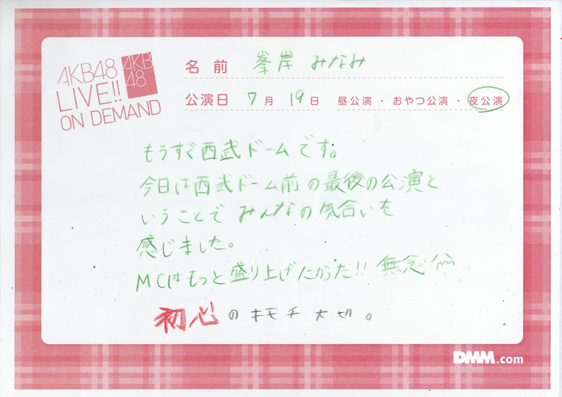 AKB48
LIVE!!
ON DEMAND
AKB
48
名前 峯岸 みなみ
公演日 7月19日 昼公演・おやつ公演・夜公演
もうすぐ西武ドームです。
今日は西武ドーム前の最後の公演と
いうことでみんなの気合いを
感じました。
MCはもっと盛り上げたかった!! 無念
初心のキモチ大切。
DMM.com